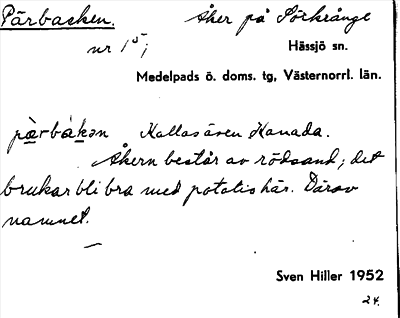 Pärbacken. Åker på Sörkrånge
nr 15;
Hässjö sn.
Medelpads ö. doms. tg, Västernorrl. län.
pä̀rbákən Kallas även Kanada.
Åkern består av rödsand; det
brukar bli bra med potatis här. Därav
namnet.
Sven Hiller 1952
24.